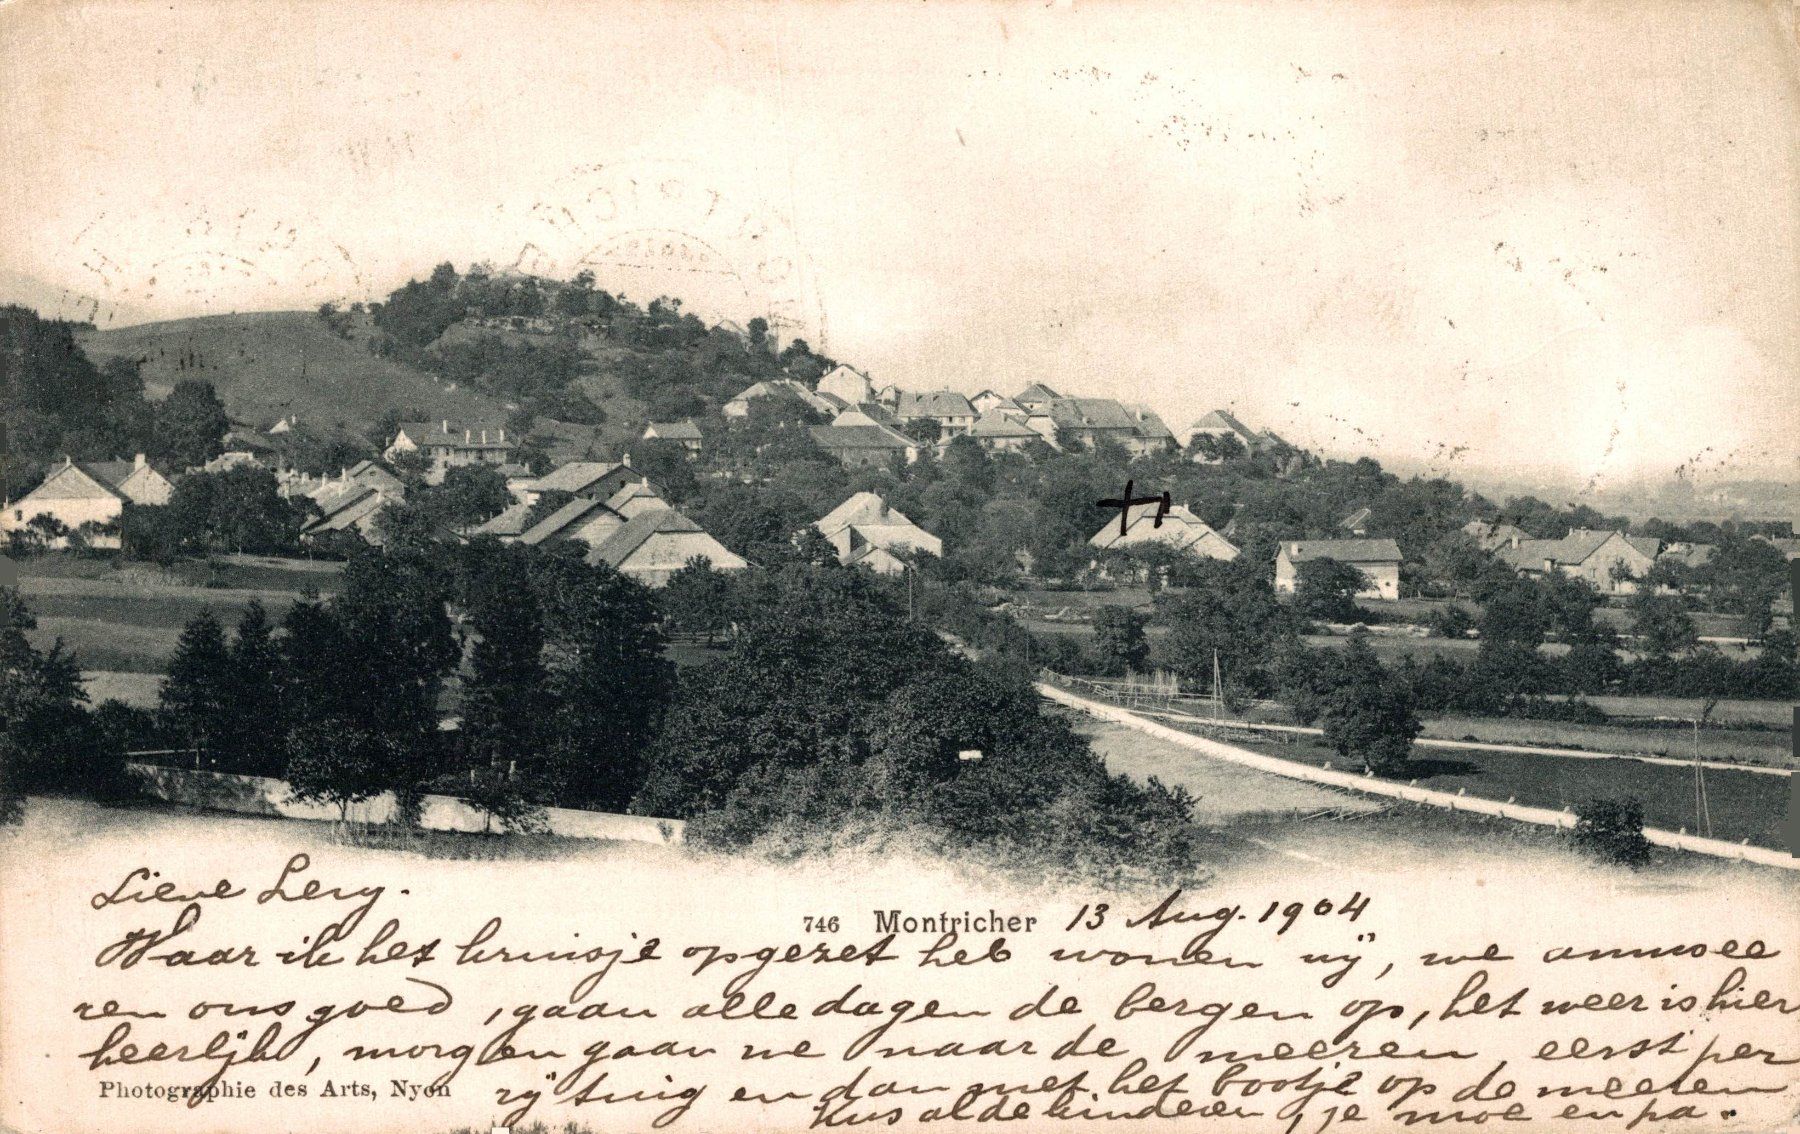 Lieve Leny.
746 Montricher 13 Aug. 1904
Waar ik het kruisje opgezet heb wonen wij, we amusee
ren ons goed, gaan alle dagen de bergen op, het weer is hier
heerlijk, morgen gaan we naar de meeren, eerst per
Photographie des Arts, Nyon rijtuig en dan met het bootje op de meeren
Kus al de kinderen, je moe en pa.